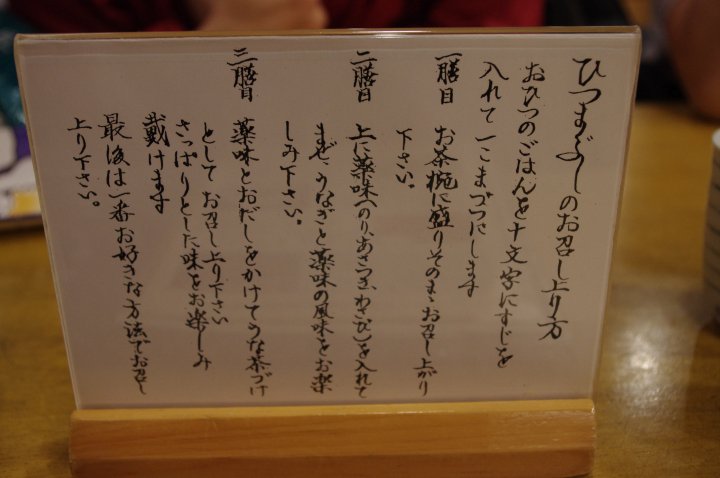 ひつまぶしのお召し上り方
おひつのごはんを十文字にすじを
入れて一こまづつにします
一膳目 お茶椀に盛りそのまゝお召し上がり
下さい。
二膳目 上に薬味(のり、あさつき、わさび)を入れて
まぜ、うなぎと薬味の風味をお楽
しみ下さい。
三膳目 薬味とおだしをかけてうな茶づけ
として お召し上り下さい
さっぱりとした味をお楽しみ
戴けます
最後は一番お好きな方法でお召し
上り下さい。